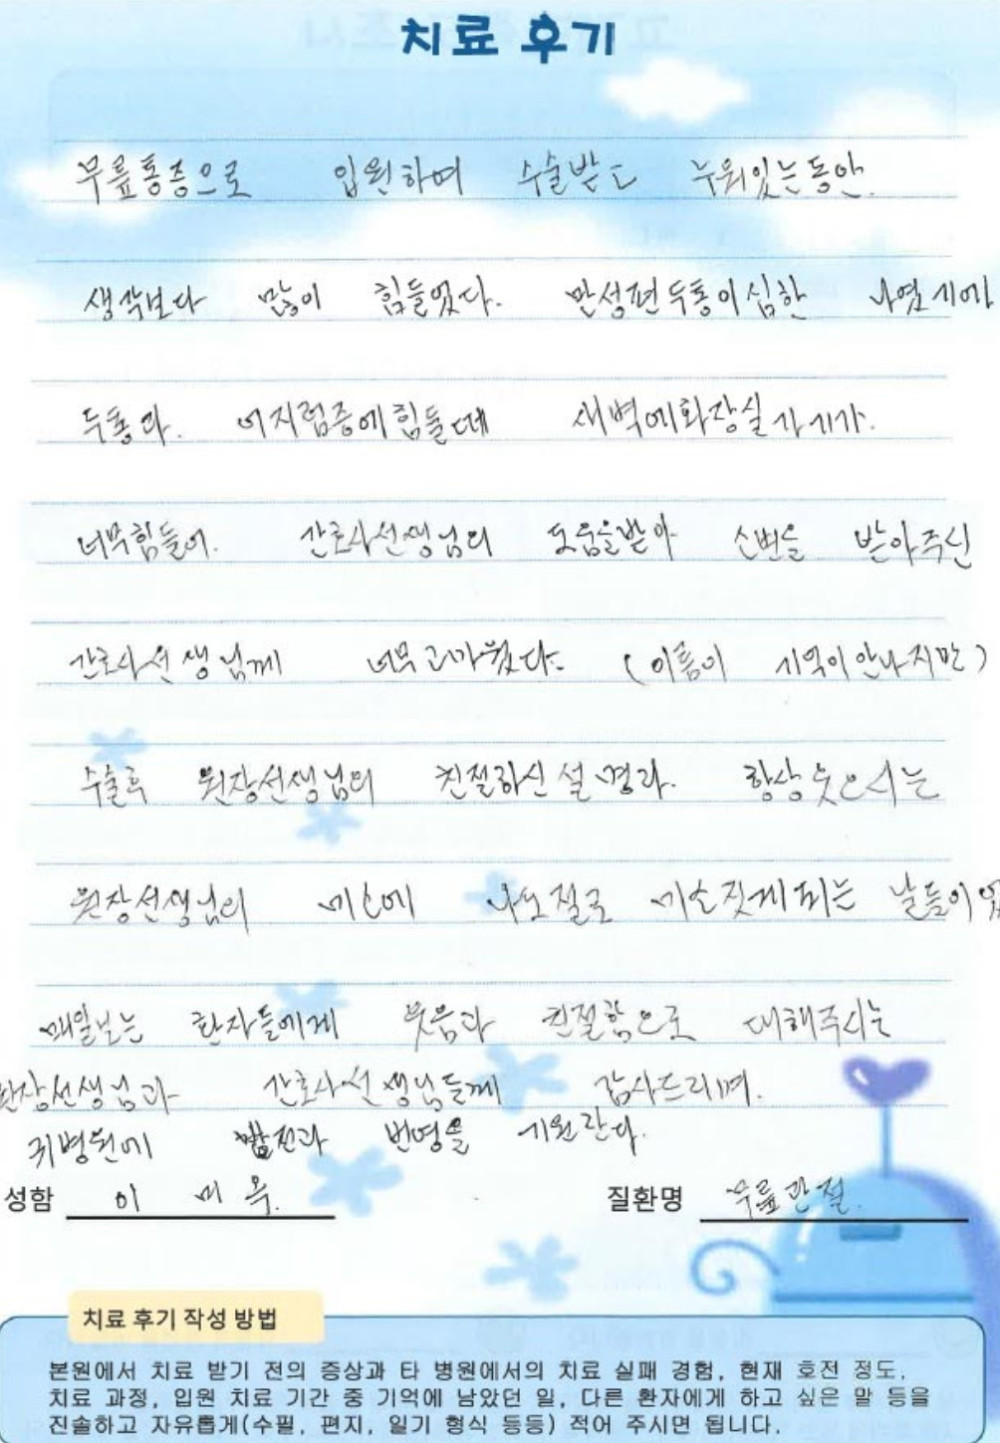 치료 후기
무릎통증으로 입원하여 수술받고 누워있는동안.
생각보다 많이 힘들었다. 만성편두통이심한 나였기에
두통과. 어지럼증에힘들데 새벽에화장실가기가.
너무힘들어. 간호사선생님의 도움을받아 소변을 받아주신
간호사선생님께 너무고마웠다. (이름이 기억이안나지만)
수술후 원장선생님의 친절하신설명과. 항상웃으시는
원장선생님의 미소에 나도절로 미소짓게되는 날들이었
매일보는 환자들에게 웃음과 친절함으로 대해주시는
원장선생님과 간호사선생님들께 감사드리며.
귀병원에 발전과 번영을 기원한다.
성함 이 미 옥. 질환명 무릎관절.
치료 후기 작성 방법
본원에서 치료 받기 전의 증상과 타 병원에서의 치료 실패 경험, 현재 호전 정도.
치료 과정, 입원 치료 기간 중 기억에 남았던 일, 다른 환자에게 하고 싶은 말 등을
진솔하고 자유롭게(수필, 편지, 일기 형식 등등) 적어 주시면 됩니다.